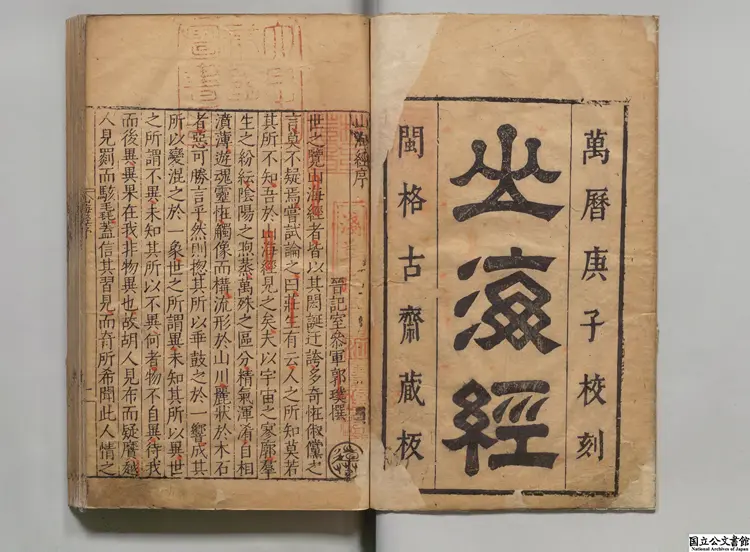 萬曆庚子校刻
山海經
閩格古齋藏板
山海經序
晉記室參軍郭璞撰
世之覽山海經者皆以其閎誕迂誇多奇怪俶儻之
言莫不疑焉嘗試論之曰莊生有云人之所知莫若
其所不知吾於山海經見之矣夫以宇宙之寥廓羣
生之紛紜陰陽之煦蒸萬殊之區分精氣渾淆自相
濆薄遊魂靈怪觸像而構流形於山川麗狀於木石
者惡可勝言乎然則揔其所以乖鼓之於一響成其
所以變混之於一象世之所謂異未知其所以異世
之所謂不異未知其所以不異何者物不自異待我
而後異異果在我非物異也故胡人見布而疑黂越
人見罽而駭毳蓋信其習見而奇所希聞此人情之
国立公文書館
National Archives of Japan